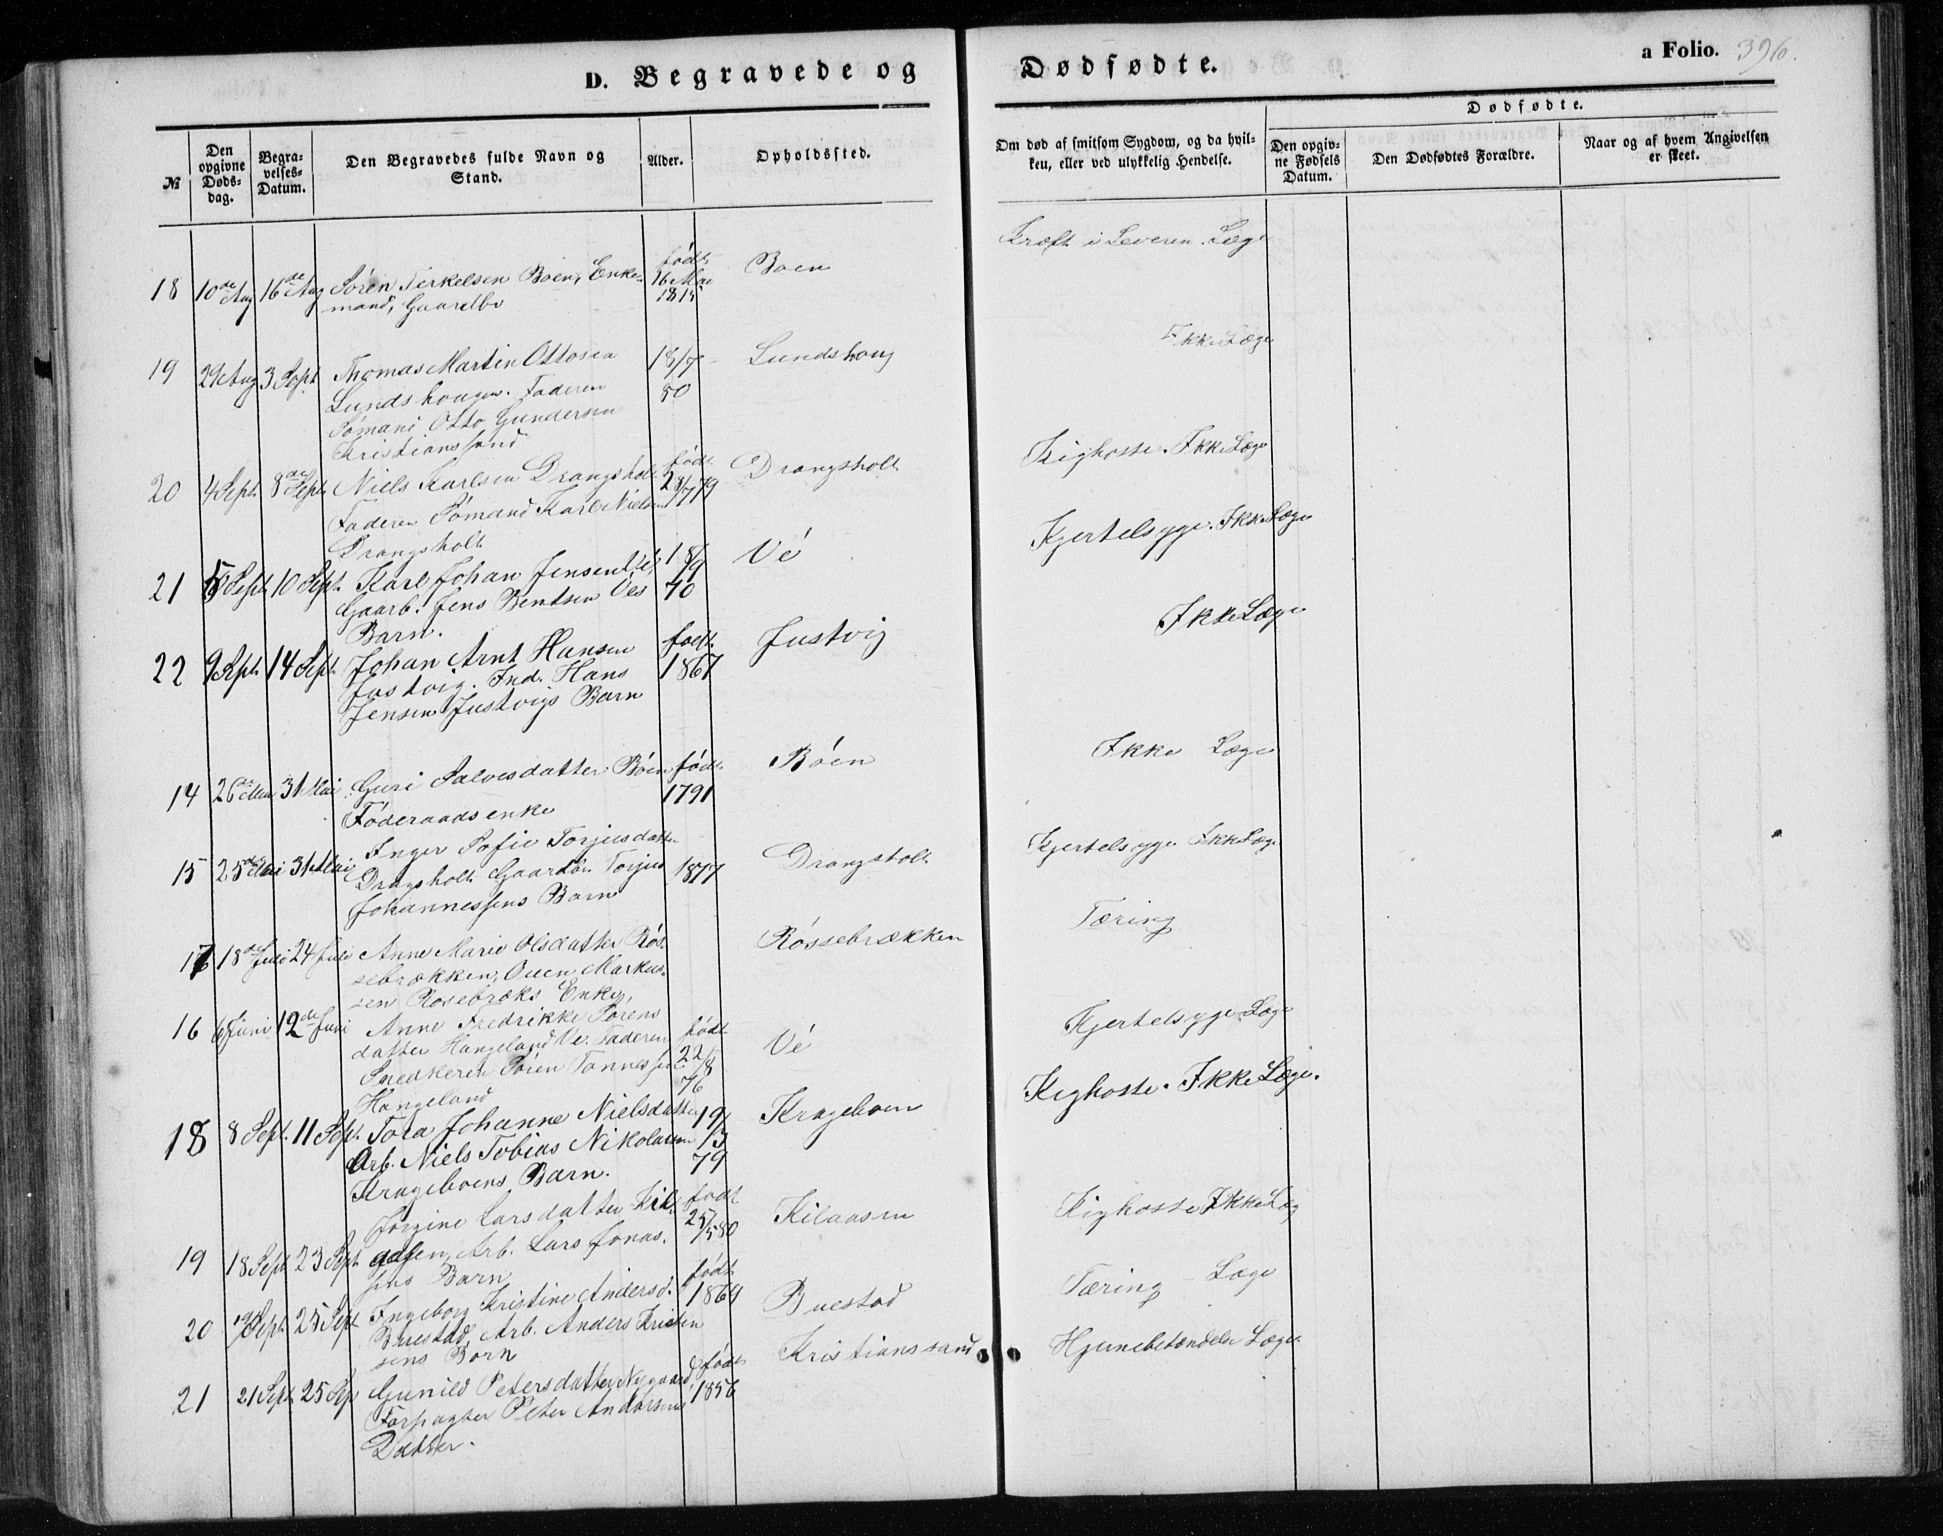 D. Begravede og Dødfødte.
a Folio. 396.
№
Den opgivne Døds-dag.
Begra-velses-Datum.
Den Begravedes fulde Navn og Stand.
Alder.
Opholdssted.
Om død af smitsom Sygdom, og da hvil-ken, eller ved ulykkelig Hendelse.
Dødfødte.
Den opgiv-ne Fødsels Datum.
Den Dødfødtes Forældre.
Naar og af hvem Angivelsen er skeet.
18 10de Aug 16de Aug Søren Terkelsen Boen, Enke- født 16 Mai 1815 Boen Kræft i Leveren Læge
mand, Gaardbr
19 29 Aug 3 Sept Thomas Martin Ottosen 18/7 80 Lundshoug Ikke Læge
Lundshougen. Faderen
Sømand Otto Gundersen
Kristianssand
20 4 Sept. 8de Sept. Niels Karlsen Drangsholt født 28/7 79 Drangsholt Kighoste. Ikke Læge
Faderen Sømand Karl Nielsen
Drangsholt
21 5 Sept. 10 Sept. Karl Johan Jensen Ve, 18/9 70 Vé Kjertelsyge. Ikke Læge
Gaarb. Jens Bentsen Ves
Barn.
22 9 Sept. 14 Sept. Johan Arnt Hansen født 1867 Justvig Ikke Læge
Justvig. Ind. Hans
Jensen Justvigs Barn
14 26de Mai 31 Mai Guri Salvesdatter Bóen født 1791 Bóen Ikke Læge
Føderaadsenke
15 25de Mai 31 Mai Inger Sofie Torjusdatter 1877 Drangsholt Kjertelsyge Ikke Læge
Dragsholt Gaardbr. Torjus
Johannessens Barn
17 18de Juli 24 Juli Anne Marie Olsdatter Røs- Røssebrækken Tæring
sebrækken, Ouen Markus-
sen Rosebræks Enke,
16 6 Juni 12de Juni Anne Fredrikke Sørens født 22/8 76 Vé Kjertelsyge Læge
datter Hangeland Ve. Faderen
Snedkeren Søren Tønnessen
Hangeland
18 8 Sept. 11 Sept. Tora Johanne Nielsdatter 19/3 79 Krageboen Kighoste. Ikke Læge.
Arb. Niels Tobias Nikolaisen
Krageboens Barn.
19 18 Sept 23 Sept Jorgine Larsdatter Kil- født 25/5 80 Kilaasen Kighoste Ikke Læg
aasen, Arb. Lars Jonas-
sens Barn
20 19de Sept. 25 Sept Ingeborg Kristine Andersd. født 1869 Buestad Tæring Læge
Buestad, Arb. Anders Kristen
sens Barn
21 21 Sept 25 Sep Gunild Petersdatter Nygaard født 1856 Kristianssand Hjernebetændelse Læge
Forpagter Peter Andersens
Datter.